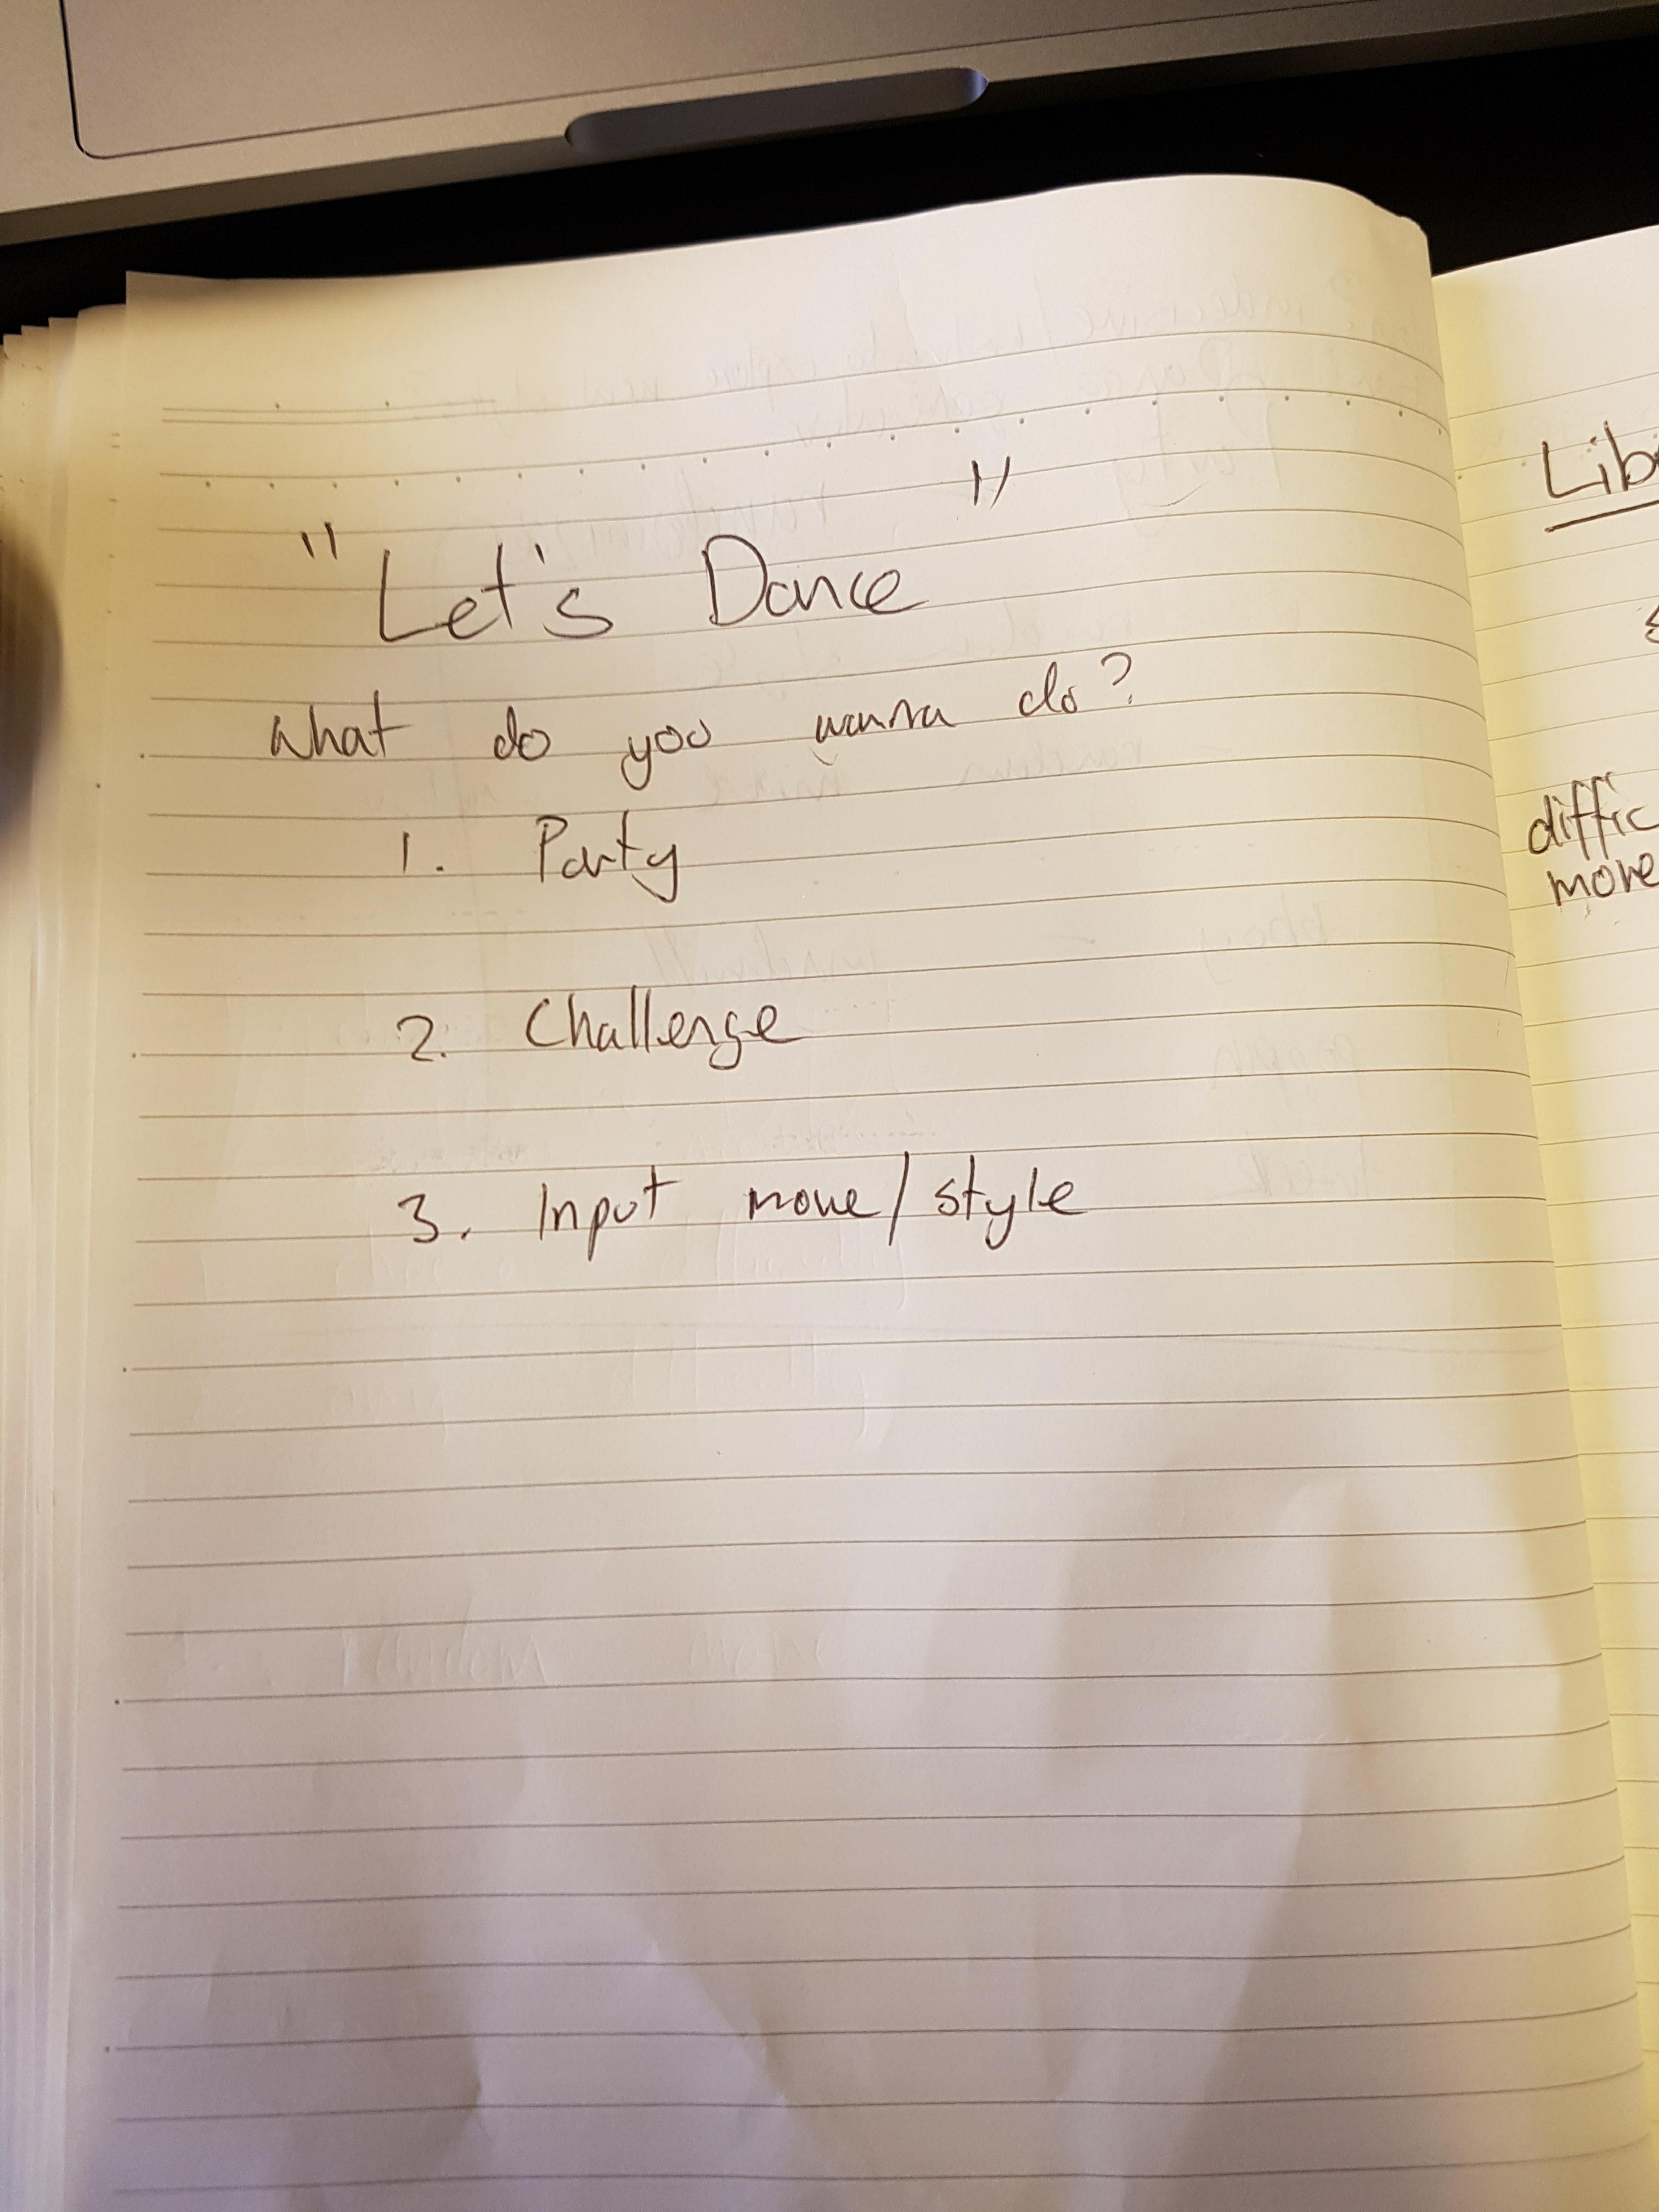 "Let's Dance"
What do you wanna do?
1. Party
2. Challenge
3. Input move/style
Lib
diffic
move